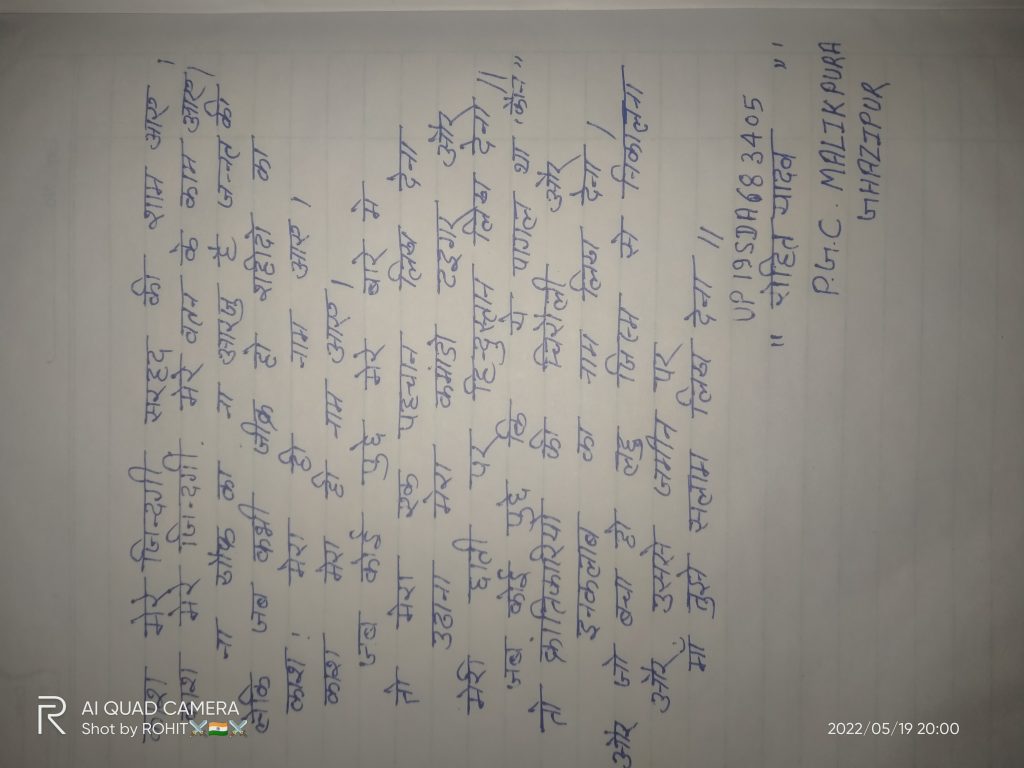 काश मेरी जिन्दगी सरहद की शाम आये।
काश मेरी जिन्दगी मेरे वतन के काम आये।
ना खौफ का ना आरजु है जन्नत की
लेकिन जब कभी जीक्र हो शहीदो का
काश! मेरा भी नाम आये।
काश मेरा भी नाम आये।
जब कोई पुछे मेरे बारे मे
तो मेरा एक पहचान लिख देना
उठाना मेरा और
मेरी छाती पर हिन्दुस्तान लिख देना॥
जब कोई पुछे कि ये पागल था कौन"
तो क्रान्तिकारियो की और
इनकलाब का नाम लिख देना।
और जो बचा हो लहू से निकालना
और उससे जमीन पे
माँ तुझे सलाम लिख देना॥
UP19SDA683405
" रोहित यादव "
P.G.C. MALIKPURA
GHAZIPUR
AI QUAD CAMERA
Shot by ROHIT
2022/05/19 20:00